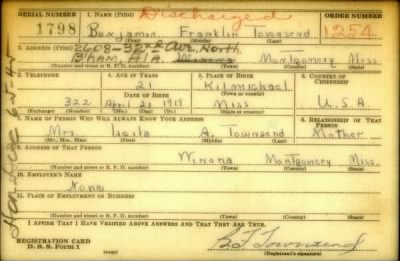 SERIAL NUMBER 1. NAME (Print) Discharged ORDER NUMBER
1798 Benjamin Franklin Townsend 1254
(First) (Middle) (Last)
2608-32nd Ave, North
2. ADDRESS (Print)
Bham, Ala. Winona Montgomery Miss.
(Number and street or R. F. D. number) (Town) (County) (State)
3. TELEPHONE 4. AGE IN YEARS 5. PLACE OF BIRTH 6. COUNTRY OF CITIZENSHIP
21 Kilmichael
DATE OF BIRTH (Town or county)
322 April 21 1919 Miss U.S.A.
(Exchange) (Number) (Mo.) (Day) (Yr.) (State or country)
7. NAME OF PERSON WHO WILL ALWAYS KNOW YOUR ADDRESS 8. RELATIONSHIP OF THAT PERSON
Mrs. A. Townsend Mother
(Mr., Mrs., Miss) (First) (Middle) (Last)
9. ADDRESS OF THAT PERSON
Winona Montgomery Miss.
(Number and street or R. F. D. number) (Town) (County) (State)
10. EMPLOYER'S NAME
None
11. PLACE OF EMPLOYMENT OR BUSINESS
(Number and street or R. F. D. number) (Town) (County) (State)
I AFFIRM THAT I HAVE VERIFIED ABOVE ANSWERS AND THAT THEY ARE TRUE.
REGISTRATION CARD
D. S. S. Form 1 B F Townsend
(Registrant's signature)